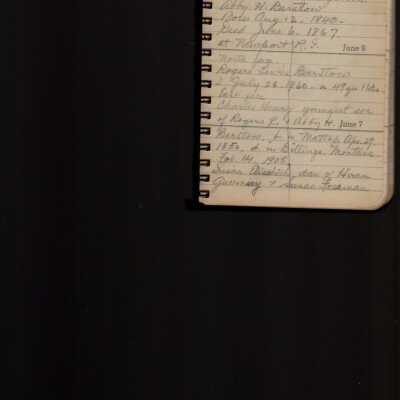 Abby H. Barstow
Born Aug. 12, 1840.
Died June 6, 1867.
at Newport R.I.
June 6
North fag.
Rogers Lewis Barstow
d July 25. 1860. a 49 yr
Charles Henry youngest son
of Rogers L. & Abby H.
June 7
Barstow, b in Mattap. Apr. 29.
1850, d. in Billings, Montana
Feb. 14, 1905.
Susan Elizabeth, dau of Hiram
Guernsey & Susan Freeman